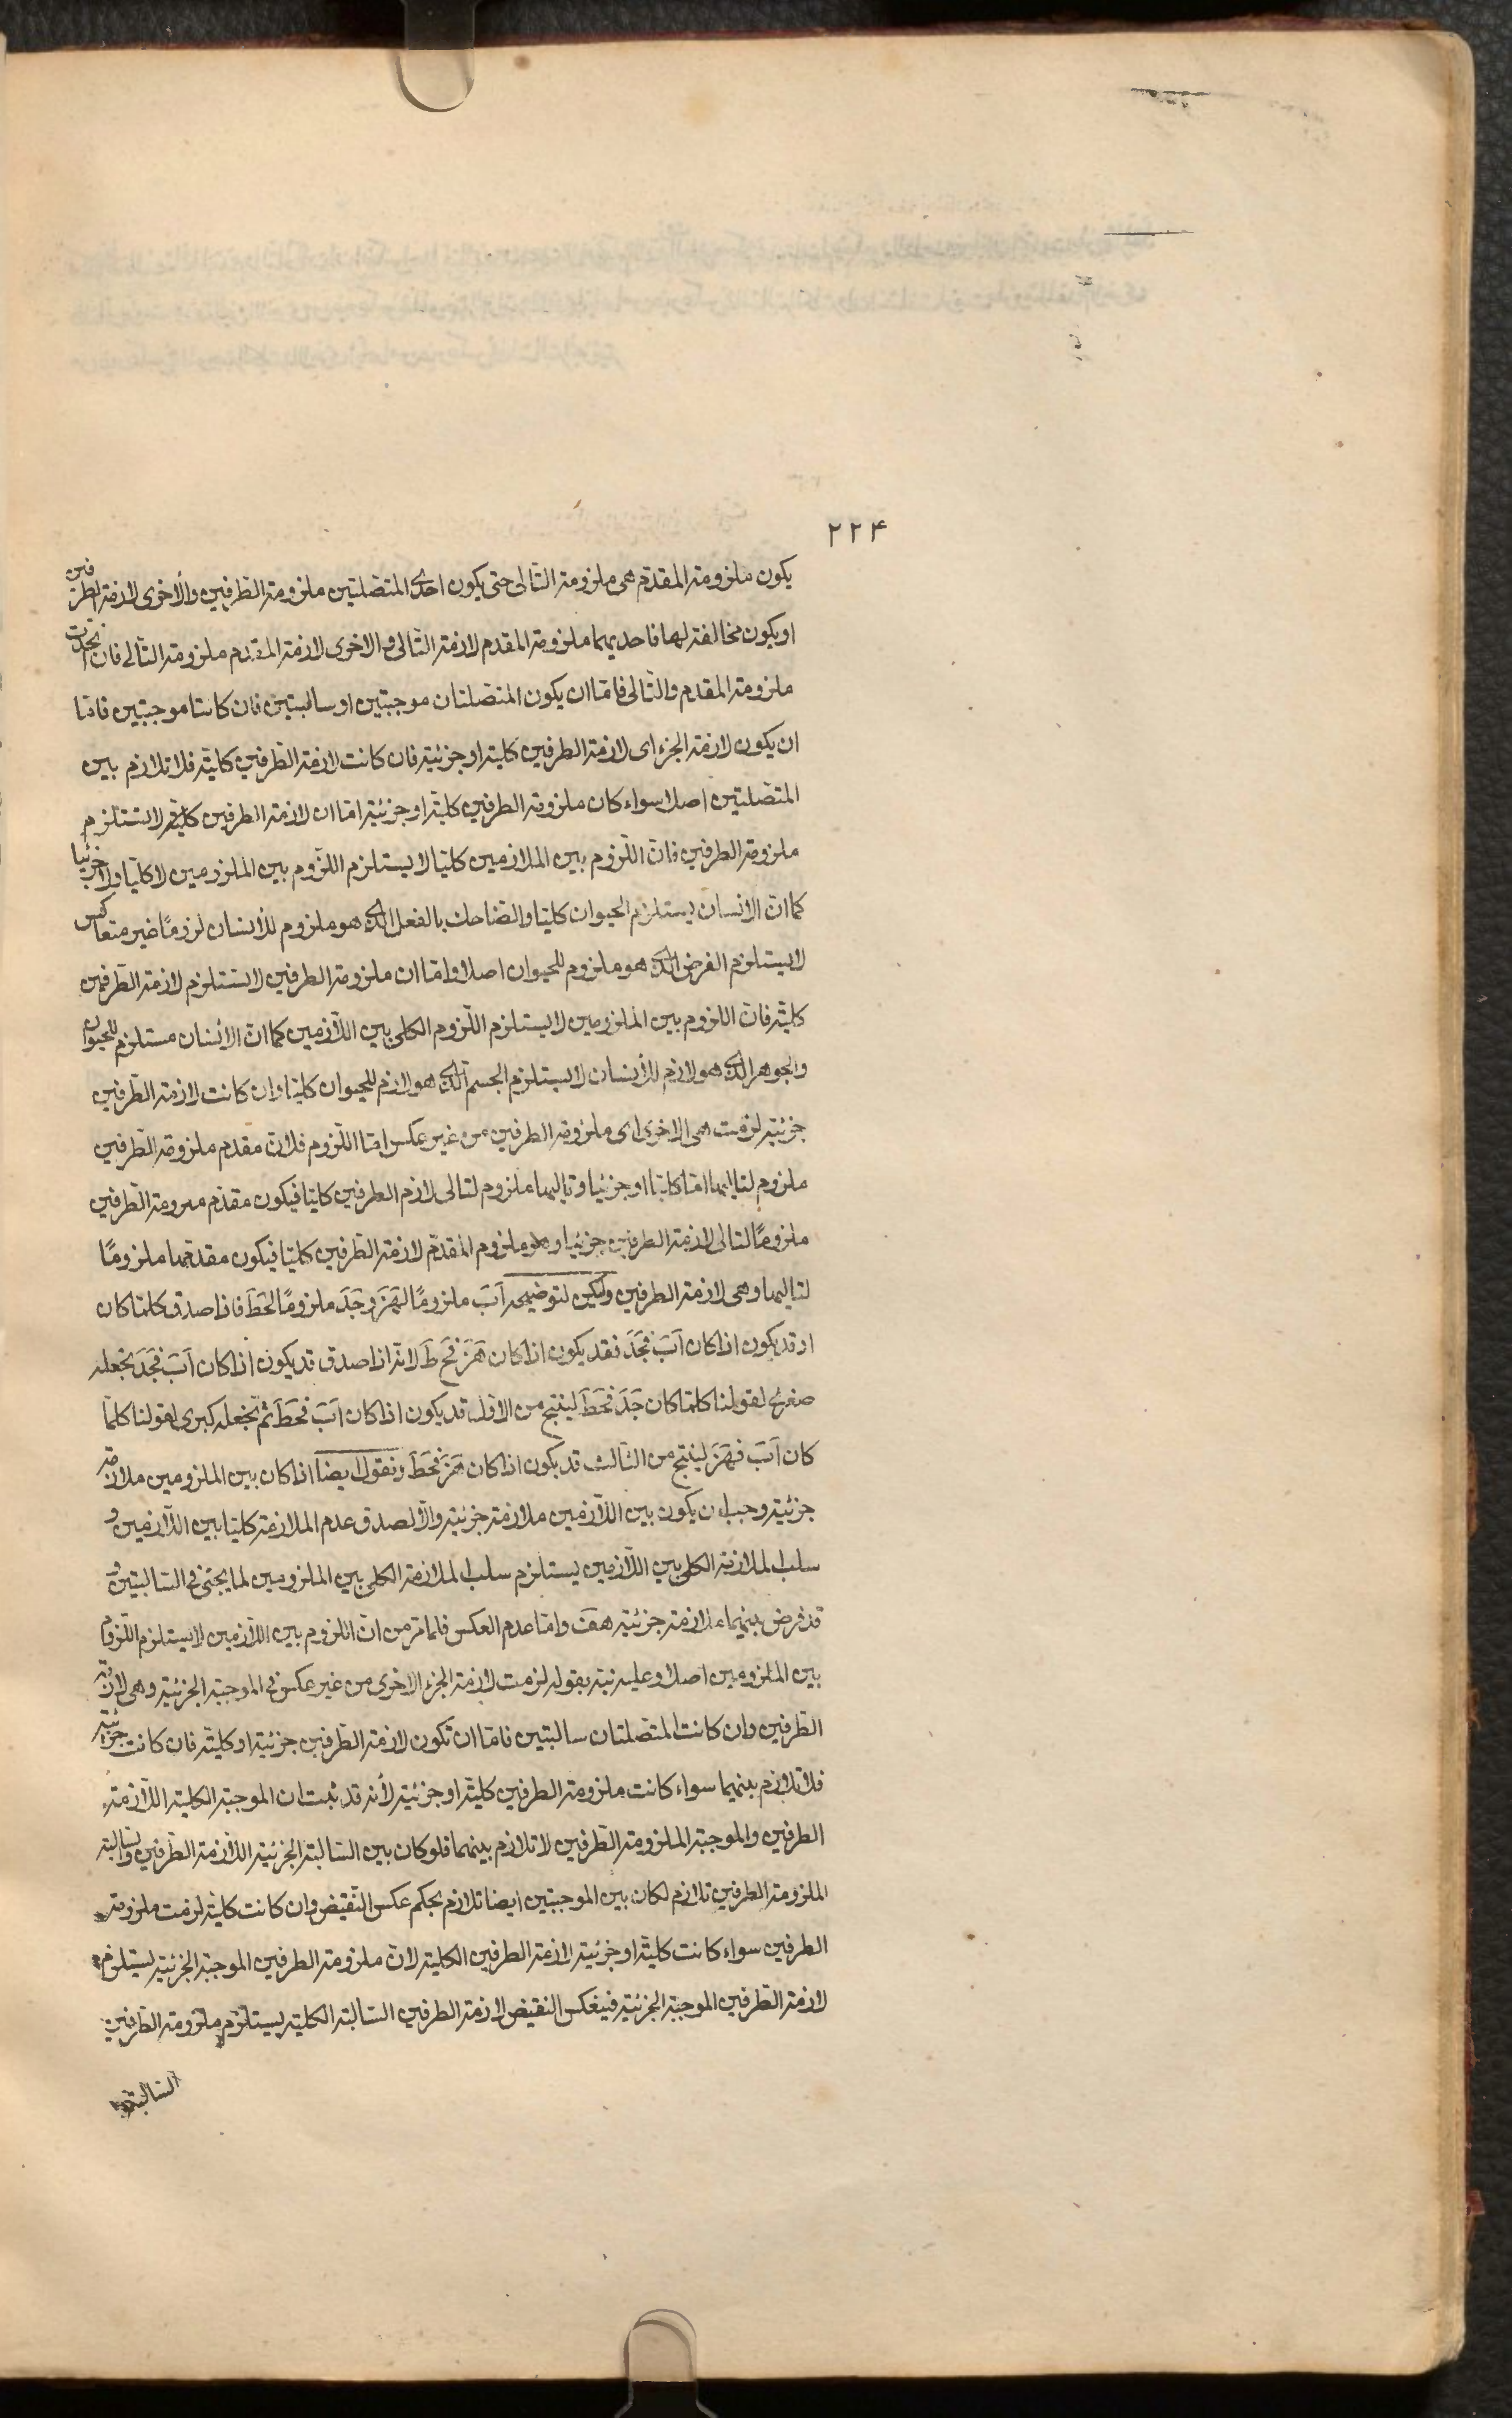 ۲۲۴
يكون ملزومة المقدّم هى ملزومة التّالى حتى يكون احدى المتّصلتين ملزومة الطّرفين والأخرى لازمة الطّرفين
او يكون مخالفة لها فاحديهما ملزومة المقدم لازمة التّالى والاخرى لازمة المقدم ملزومة التّالى فان اتّحدت
ملزومة المقدم والتّالى فامّا ان يكون المتّصلتان موجبتين او سالبتين فان كانتا موجبتين فامّا
ان يكون لازمة الجزء اى لازمة الطرفين كلية او جزئية فان كانت لازمة الطّرفين كليّة فلا تلازم بين
المتّصلتين اصلا سواء كان ملزومة الطرفين كليّة او جزئية امّا ان لازمة الطرفين كليّة لا تستلزم
ملزومة الطرفين فانّ اللّزوم بين الملازمين كليّا لا يستلزم اللّزوم بين الملزومين لا كليّا ولا جزئيا
كما انّ الانسان يستلزم الحيوان كليّا والضّاحك بالفعل الذى هو ملزوم للأنسان لزومًا غير متعاكس
لا يستلزم الفرس الذى هو ملزوم للحيوان اصلا وامّا ان ملزومة الطرفين لا تستلزم لازمة الطّرفين
كليّة فانّ اللزوم بين الملزومين لا يستلزم اللّزوم الكلى بين اللّازمين كما انّ الأنسان مستلزم للحيوان
والجوهر الذى هو لازم للأنسان لا يستلزم الجسم الذى هو لازم للحيوان كليّا وان كانت لازمة الطّرفين
جزئية لزمت هى الاخرى اى ملزومة الطرفين من غير عكس امّا اللّزوم فلانّ مقدم ملزومة الطّرفين
ملزوم لتاليها امّا كليّا او جزئيا وتاليها ملزوم لتالى لازم الطرفين كليّا فيكون مقدّم ملزومة الطّرفين
ملزومًا لتالى لازمة الطرفين جزئيا وهو ملزوم المقدّم لازمة الطّرفين كليّا فيكون مقدّمها ملزومًا
لتاليها وهى لازمة الطرفين وليكن لتوضيحه اَبَ ملزومًا لهَزَ وجَدَ ملزومًا لحَطَ فاذا صدق كلما كان
او قد يكون اذا كان اَبَ فجَدَ فقد يكون اذا كان هَزَ فحَ طَ لانّه اذا صدق قد يكون اذا كان اَبَ فجَدَ نجعله
صغرى لقولنا كلّما كان جَدَ فحَطَ لينتج من الاوّل قد يكون اذا كان اَبَ فحَطَ ثمّ نجعله كبرى لقولنا كلّما
كان اَبَ فهَزَ لينتج من الثّالث قد يكون اذا كان هَزَ فحَطَ ونقول ايضًا اذا كان بين الملزومين ملازمة
جزئية وجب ان يكون بين اللّازمين ملازمة جزئية والّا لصدق عدم الملازمة كليّا بين اللّازمين و
سلب الملازمة الكلى بين اللّازمين يستلزم سلب الملازمة الكلى بين الملزومين لما يجئ فى السّالبتين و
قد فرض بينهما ملازمة جزئية هف وامّا عدم العكس فلما مرّ من انّ اللزوم بين اللّازمين لا يستلزم اللّزوم
بين الملزومين اصلا وعليه نبّه بقوله لزمت لازمة الجزء الاخرى من غير عكس فى الموجبة الجزئية وهى لازمة
الطّرفين وان كانت المتّصلتان سالبتين فامّا ان تكون لازمة الطّرفين جزئيّة او كليّة فان كانت جزئيّة
فلا تلازم بينهما سواء كانت ملزومة الطرفين كليّة او جزئيّة لأنّه قد ثبت ان الموجبة الكليّة اللّازمة
الطرفين والموجبة الملزومة الطّرفين لا تلازم بينهما فلو كان بين السّالبة الجزئيّة اللّازمة الطّرفين والسّالبة
الملزومة الطرفين تلازم لكان بين الموجبتين ايضا تلازم بحكم عكس النّقيض وان كانت كليّة لزمت ملزومة
الطرفين سواء كانت كليّة او جزئيّة لازمة الطرفين الكلية لانّ ملزومة الطرفين الموجبة الجزئية يستلزم
لازمة الطّرفين الموجبة الجزئية فبعكس النقيض لازمة الطرفين السّالبة الكلية يستلزم ملزومة الطّرفين
السّالبة